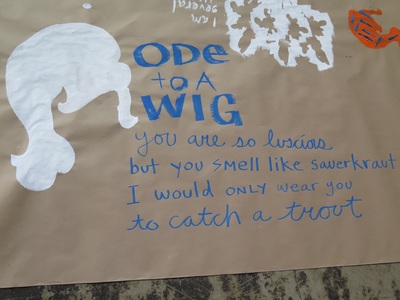 I am
several
ODe
to A
WIG
you are so luscious
but you smell like sauerkraut
I would ONLY wear you
to catch a trout